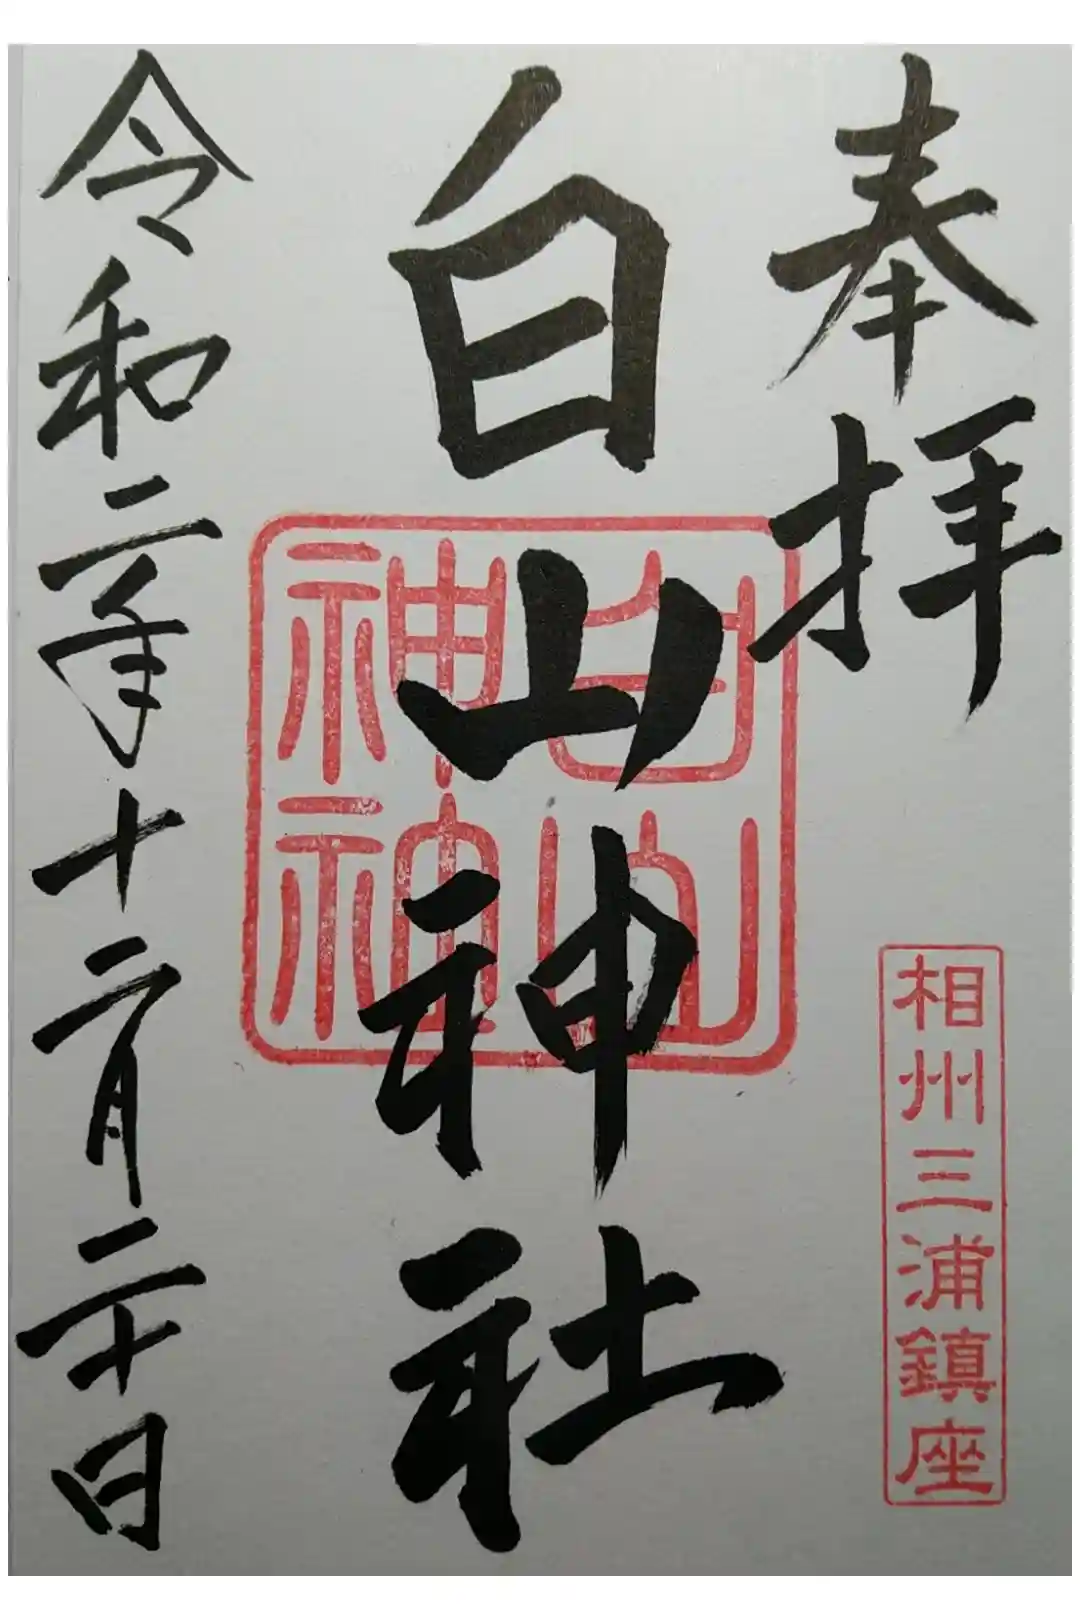 奉拝
相州三浦鎮座
白山神社
白山神神
令和二年十二月二十日